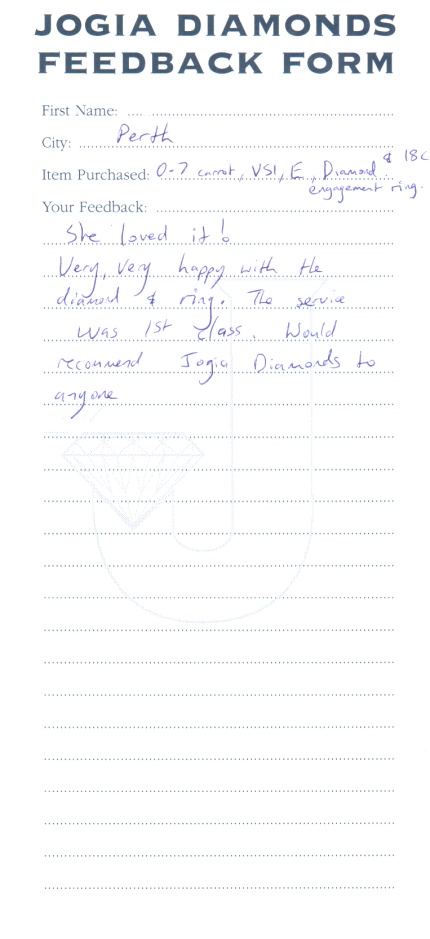 JOGIA DIAMONDS
FEEDBACK FORM
First Name:
City: Perth
Item Purchased: 0-7 carrot, VS1, E, Diamond & 18C
engagement ring.
Your Feedback:
She loved it!
Very, very happy with the
diamond & ring. The service
was 1st class. Would
recommend Jogia Diamonds to
anyone